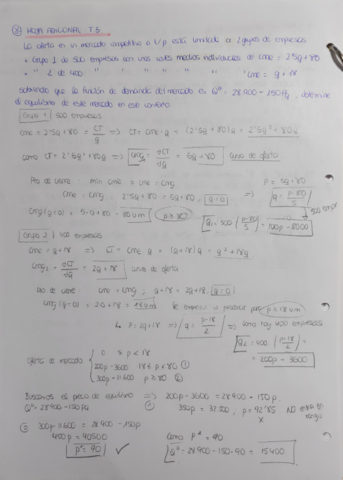 HOJA ADICIONAL T.8
La oferta en un mercado competitivo a c/p está limitada a 2 grupos de empresas
• Grupo 1 de 500 empresas con unos costes medios individuales de CMe = 2'5q + 80
• " 2 de 400 " " " " " " CMe = q + 18
Sabiendo que la función de demanda del mercado es Qᴰ = 28.900 - 150p, determine
el equilibrio de este mercado en ese contexto
Grupo 1 500 empresas
CMe = 2'5q + 80 = CT/q => CT = CMe · q = (2'5q + 80)q = 2'5q² + 80q
Como CT = 2'5q² + 80q => CMg = = 5q + 80 curva de oferta
CMe = CMg; 2'5q + 80 = 5q + 80; q = 0
p = 5q + 80
q = p-80/5
CMg (q=0) = 5·0 + 80 = 80um p ≥ 80
= 500 (p-80/5) = 100p - 8000
Grupo 2 400 empresas
CMe = q + 18 => CT = CMe · q = (q + 18)q = q² + 18q
= 2q + 18 curva de oferta
CMe = CMg; q + 18 = 2q + 18; q = 0
CMg (q=0) = 2·0 + 18 = 18um Se empieza a producir para p = 18um
↳ p = 2q + 18 => q = p-18/2 => como hay 400 empresas
= 400 (p-18/2) =
= 200p - 3600
Oferta de mercado
0 p < 18
200p - 3600 18 ≤ p < 80 ①
300p - 11.600 p ≥ 80 ②
Buscamos el precio de equilibrio => 200p - 3600 = 28.900 - 150p
Qᴰ = 28.900 - 150p ① 350p = 32.500, p = 92'85 No está en rango
② 300p - 11.600 = 28.900 - 150p
450p = 40500
p* = 90
Como p* = 90
Qᴰ = 28.900 - 150·90 = 15.400